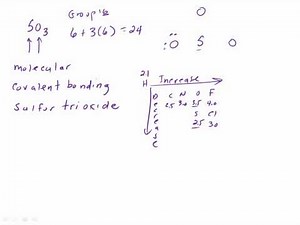 SO3
Group 16
6 + 3(6) = 24
O
:O S O
molecular
covalent bonding
sulfur trioxide
21
H Increase
Decrease
C N O F
2.5 3.0 3.5 4.0
S Cl
2.5 3.0